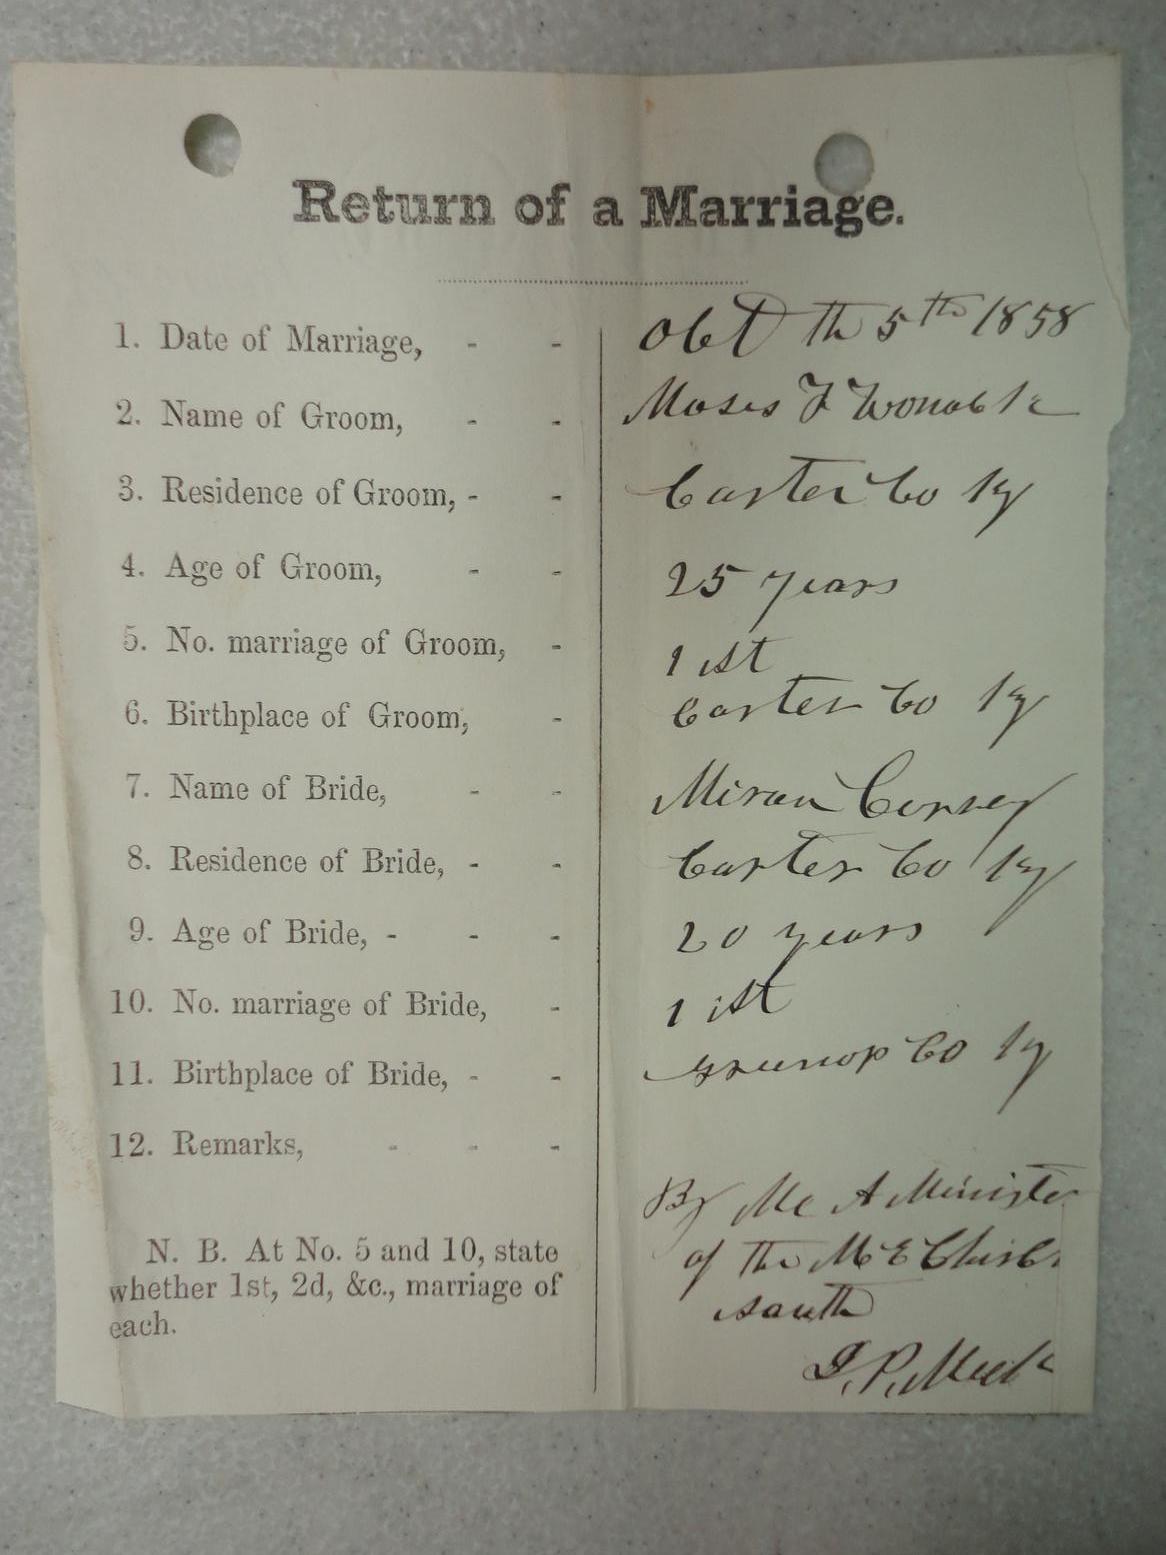 Return of a Marriage.
1. Date of Marriage, - - Oct th 5th 1858
2. Name of Groom, - - Moses F Womack
3. Residence of Groom, - - Carter Co Ky
4. Age of Groom, - - 25 years
5. No. marriage of Groom, - 1 ist
6. Birthplace of Groom, - Carter Co Ky
7. Name of Bride, - -
8. Residence of Bride, - - Carter Co Ky
9. Age of Bride, - - - 20 years
10. No. marriage of Bride, - 1 ist
11. Birthplace of Bride, - - Greenup Co Ky
12. Remarks, - - -
By Me A Minister
of the M E Church
south
J. P. Meek
N. B. At No. 5 and 10, state
whether 1st, 2d, &c., marriage of
each.